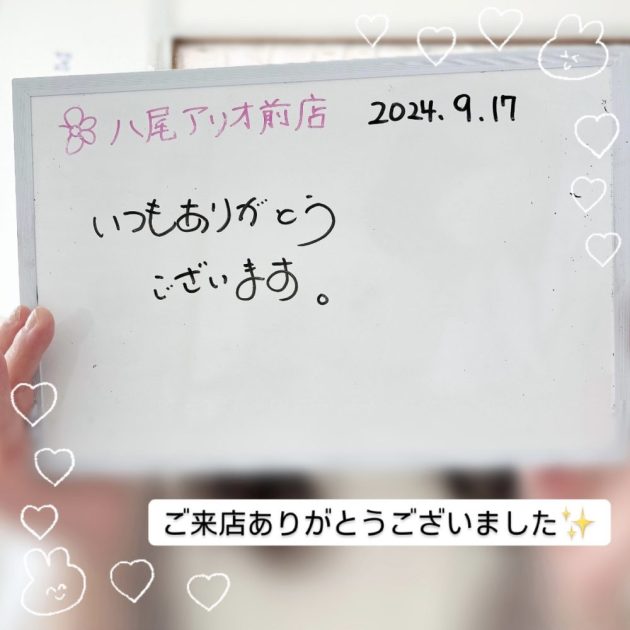 八尾アリオ前店 2024.9.17
いつもありがとう
ございます。
ご来店ありがとうございました✨